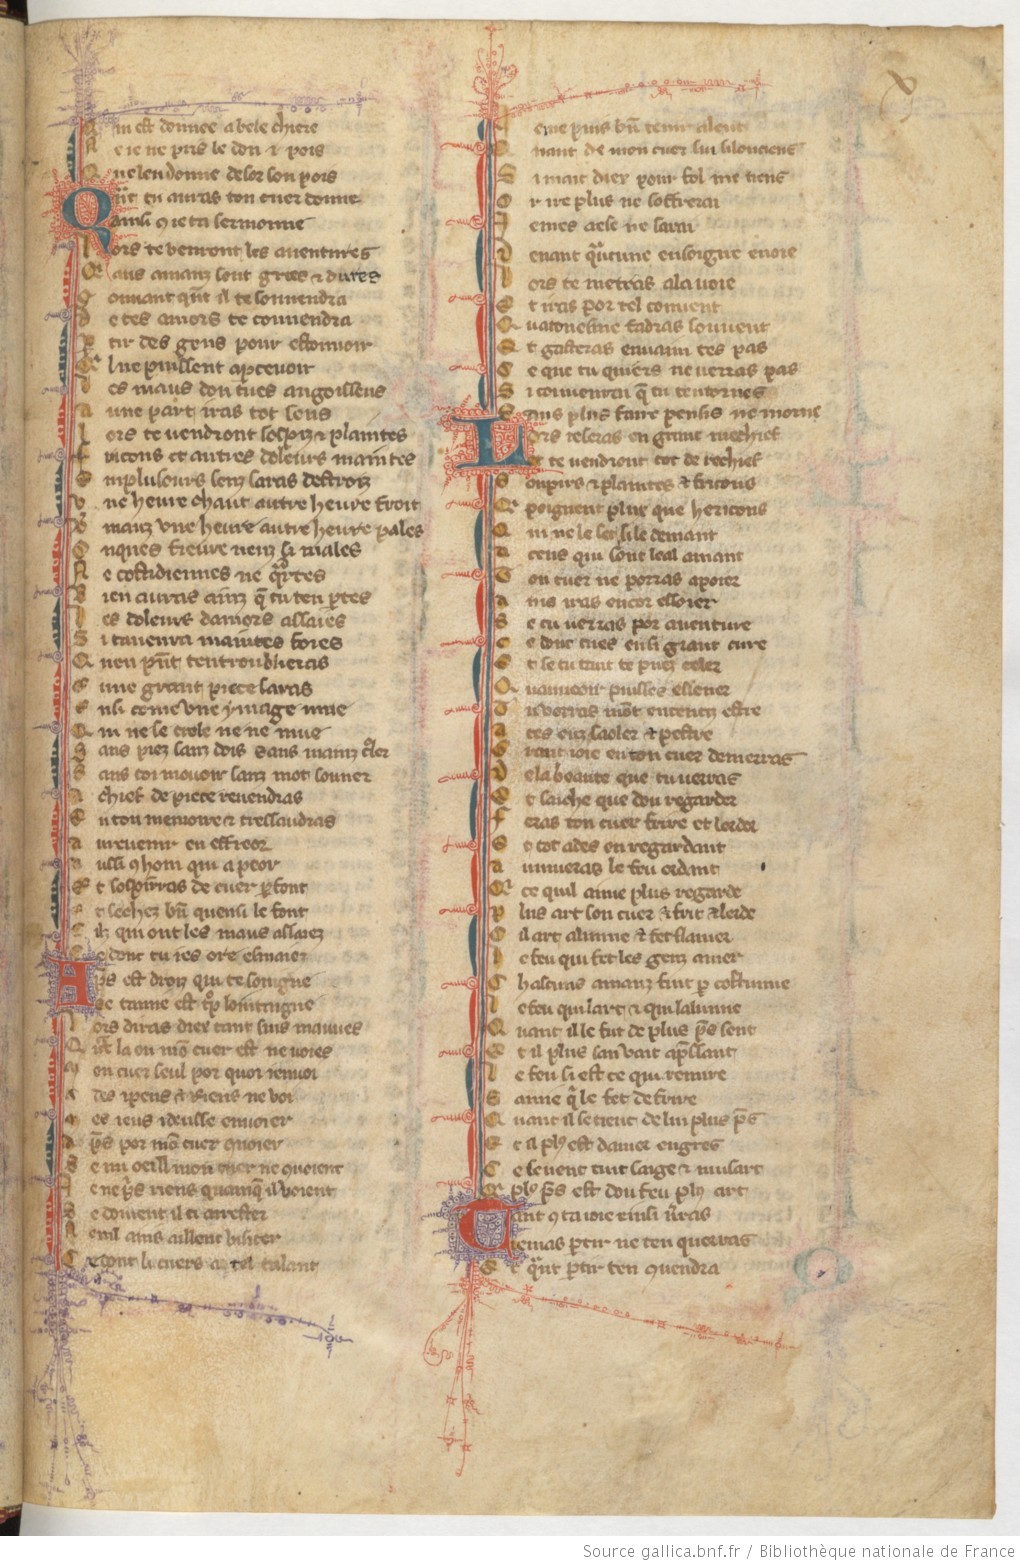 ui est donnee a bele chiere
e ie ne pris le don .i. pois
ue len donne desor son pois
Qⁿt tu auras ton cuer donne
ainsi 9 ie tai sermonne
Lors te venront les auentures
aus amanz sont gries & dures
ouuant qⁿt il te souuendra
e tes amors te couuendra
ptir des gens pour estouuoir
lne puissent apceuoir
es maus don tu es angoisseus
a une part iras tot seus
Lors te vendront sospirs & plaintes
fricons et autres doleurs maintes
En plusours sens saras destroiz
vne heure chaut autre heure froit
vmauz vne heure autre heure pales
Onques fieure neuz si males
Ne cotidiennes ne qrtes
Bien auras ainz q̄ tu ten ptes
les doleurs damors assaies
Si tauenra maintes foies
Quen pens tentroublieras
E une grant piece saras
Ensi come vne ymage mue
Qui ne se crole ne ne mue
Sans piez sanz dois sans mainz croler
Sans toi mouoir sanz mot sonner
A chief de piece reuendras
En ton memoire & tressaudras
Au reuenir en effreor
aussi 9 hom qui a peor
Et sospirras de cuer pfont
Et sechez bn̄ quensi le font
Cilz qui ont les maus assaiez
e donc tu ies ore esmaiez
Aps est droiz qui te souigne
Que tamie est tp lointaigne
Lors diras diex tant suis mauues
Qⁿt la ou mō cuer est ne voies
Mon cuer seul por quoi renuoi
Ades ipens & riens ne voi
es ieus ideusse enuoier
Aps por mō cuer quoier
Se mi oeill mon cuer ne quoient
Je ne pris riens quamq̄ il voient
Se doiuent il ci arrester
Nenil ains aillent visiter
Ce dont li cuers a tel talant
e me puis bn̄ tenir a lent
Quant de mon cuer sui si lonciens
Si mait diex pour fol me tiens
Or ire plus ne sofferrai
Jemes aese ne sarai
Deuant qⁿcune ensoigne en oie
lors te metras a la voie
Et iras por tel couuent
Qua ton esme faudras souuent
Et gasteras en uain tes pas
Ce que tu quiers ne verras pas
Si couuenra q̄ tu tentornes
Sans plus faire pensis ne morne
Lors reseras en grant meschief
Et te vendront tot de rechief
Soupirs & plaintes & fricons
Qpoignent plus que hericons
Qui ne le set si le demant
A ceus qui sont leal amant
Ton cuer ne porras apoier
Ains iras encor essoier
Se tu verras por auenture
Ce donc tu es en si grant cure
Et se tu tant te puez celer
Qua uueoir puisses esliener
Tu vorras mōt ententiz estre
A tes euz saoler & pestre
Grant ioie en ton cuer demerras
De la beaute que tu verras
Et saiche que dou regarder
Feras ton cuer frire et larder
Et tot ades en regardant
Auiueras le feu ardant
Qi ce quil aime plus regarde
Plus art son cuer & frit & larde
Cil art alume & fet flamer
Le feu qui fet les genz amer
Chascuns amanz suit p costume
Le feu qui lart & qui lalume
Quant il le feu de plus ps sent
Et il plus san vait apssant
Le feu si est ce qui remire
Samie q̄ le fet defrire
Quant il se tient de lui plus ps
Et il pl9 est damer engres
Ce seuent tuit saige & musart
Qi pl9 ps est dou feu pl9 art
Tant 9 ta ioie einsi vras
Jemais ptir ne ten querras
Et qⁿt ptir ten 9uendra
Source gallica.bnf.fr / Bibliothèque nationale de France